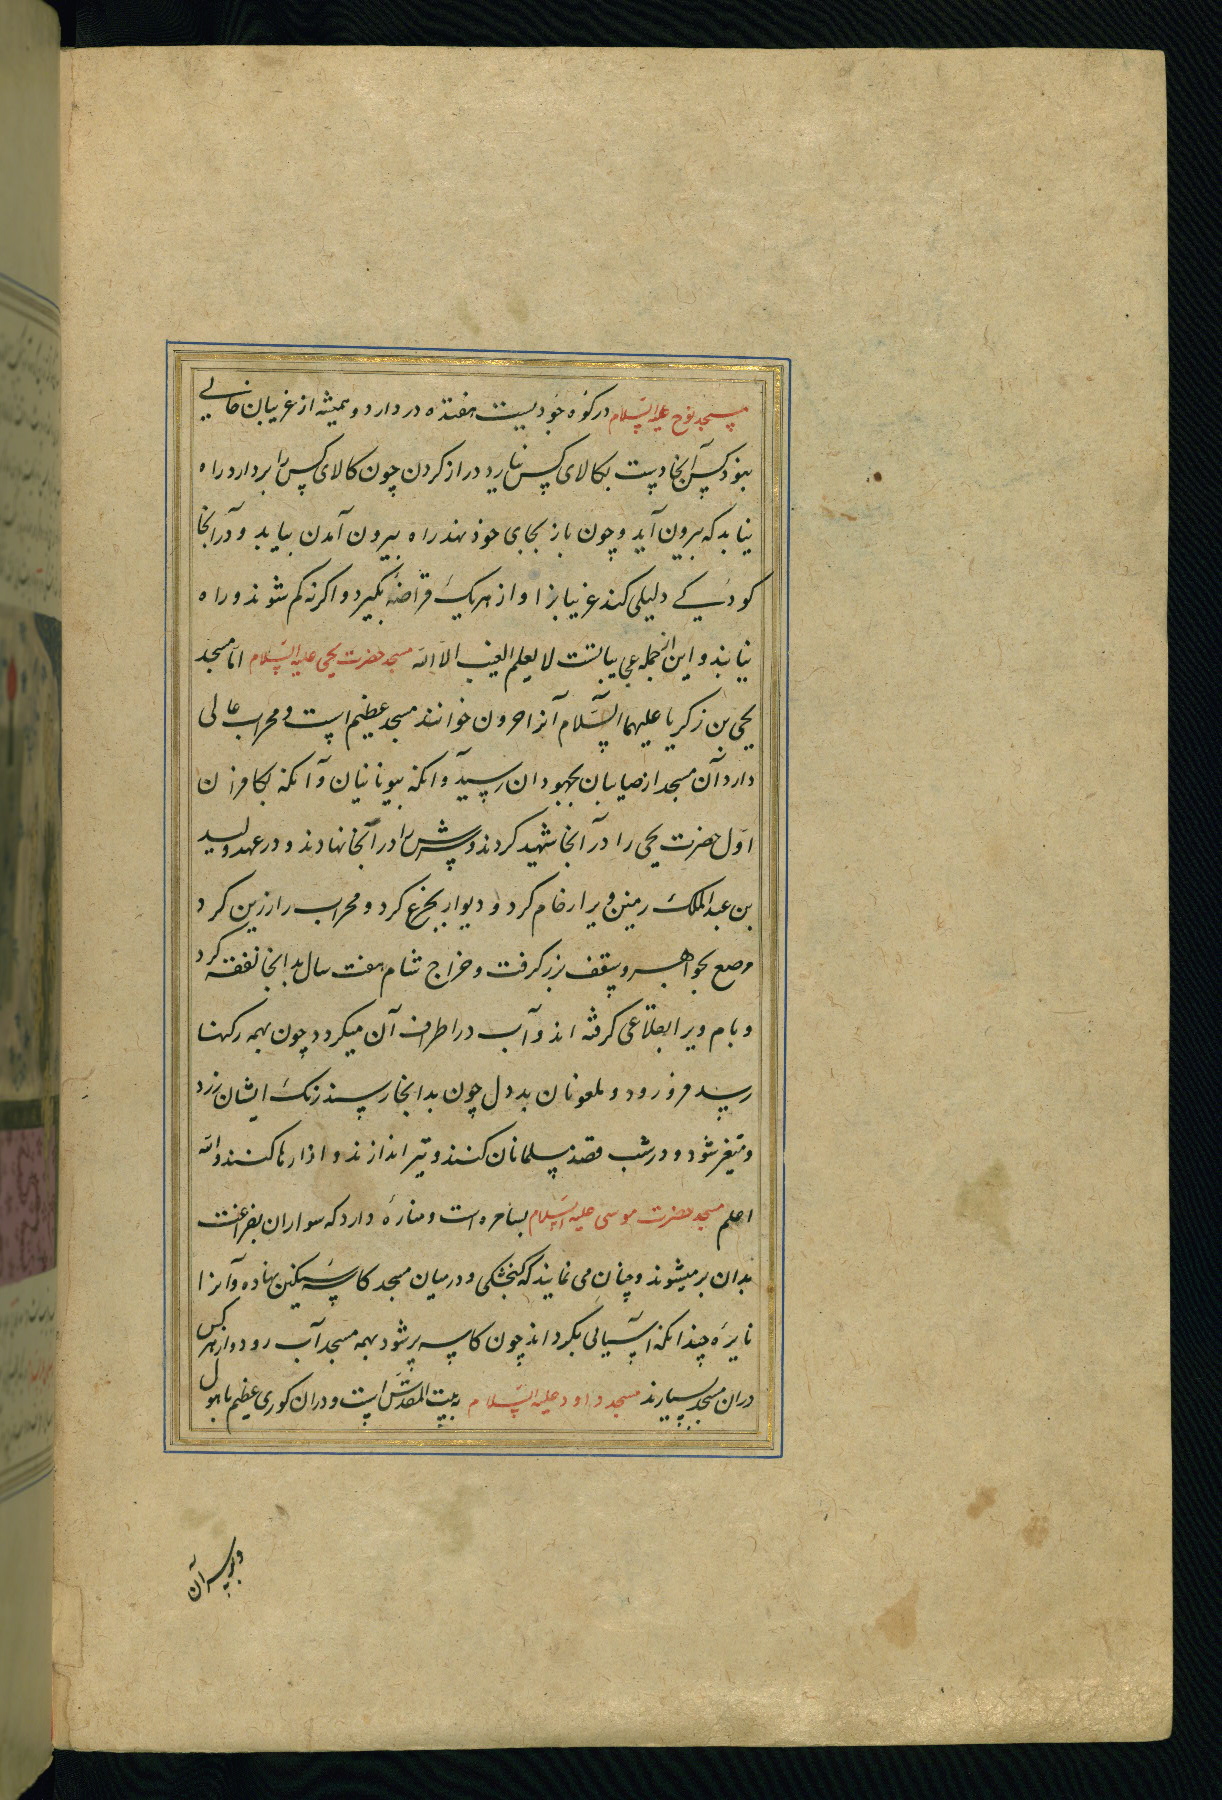 مسجد نوح علیه السّلام در کوه جودیست هفتده در دارد و همیشه از غریبان خالی
نبود کس آنجا دست بکالای کس نیارد دراز کردن چون کالای کس را بردارد راه
نیابد که بیرون آید و چون باز بجای خود نهد راه بیرون آمدن بیابد و در آنجا
کودکی دلیلی کند غریبانرا و از هریک قراضهٔ بگیرد و اگرنه گم شوند و راه
نیابند و این از جمله عجایبست لا یعلم الغیب الا الله مسجد حضرت یحیی علیه السّلام امّا مسجد
یحیی بن زکریا علیهما السّلام آنرا حرون خوانند مسجد عظیم است و محراب عالی
دارد آن مسجد از صابیان بجهودان رسید وآنگه بیونانیان وآنگه بکافران
اوّل حضرت یحیی را در آنجا شهید کردند و سرش را در آنجا نهادند و در عهد ولید
بن عبد الملک زمین ویرا رخام کرد و دیوار بجزع کرد و محراب را زرین کرد
مرصع بجواهر و سقف بزر گرفت و خراج شام هفت سال بدانجا نفقه کرد
و بام ویرا بقلاعی گرفته اند و آب در اطراف آن میگردد چون بهمه رکنها
رسید فرو رود و ملعونان بددل چون بدانجا رسند رنگ ایشان زرد
و متغیر شود و در شب قصد مسلمانان کنند و تیر اندازند و اذارها کنند والله
اعلم مسجد حضرت موسی علیه السّلام است و منارهٔ دارد که سواران بفراغت
بدان بر میشوند و چنان می نمایند که گنجشکی و در میان مسجد کاسهٔ سنگین نهاده و آنرا
نایره چندانکه آسیائی بگرداند چون کاسه پر شود بهمه مسجد آب رود و از هر کس
در آن مسجد بسیارند مسجد داود علیه السّلام ببیت المقدّس است و در آن کوری عظیم باهول
و بر سر آن